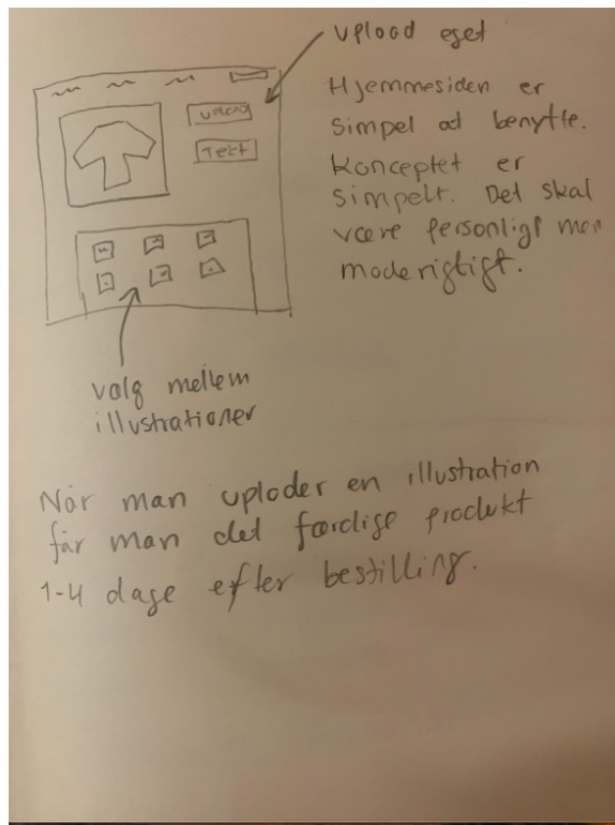 upload eget
Hjemmesiden er
simpel at benytte.
Konceptet er
simpelt. Det skal
være personligt men
moderigtigt.
UPLOAD
TEKT
valg mellem
illustrationer
Når man uploder en illustration
får man det færdige produkt
1-4 dage efter bestilling.